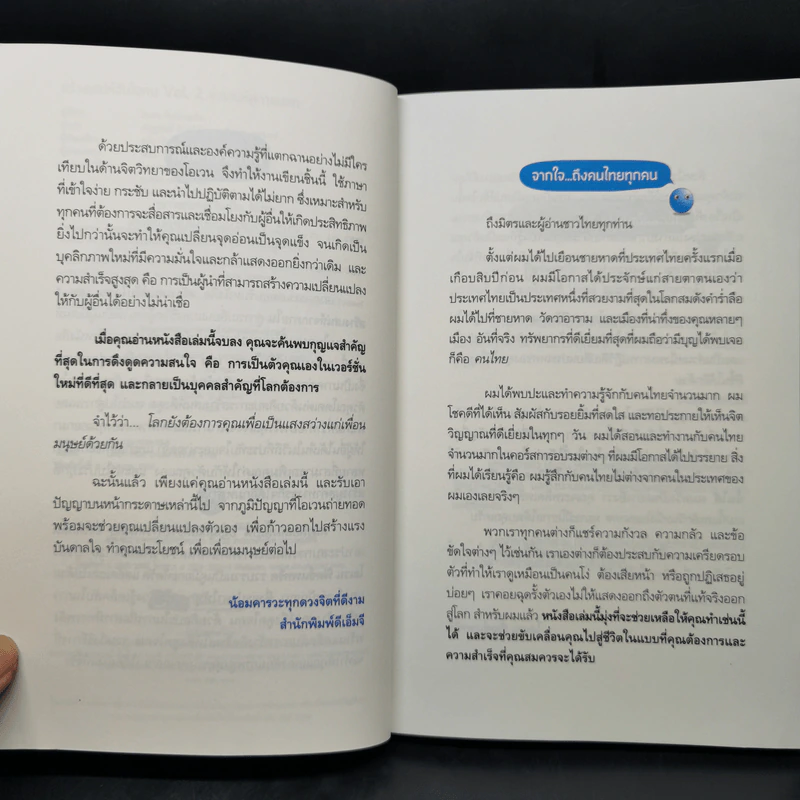 ด้วยประสบการณ์และองค์ความรู้ที่แตกฉานอย่างไม่มีใคร
เทียบในด้านจิตวิทยาของโอเวน จึงทำให้งานเขียนชิ้นนี้ ใช้ภาษา
ที่เข้าใจง่าย กระชับ และนำไปปฏิบัติตามได้ไม่ยาก ซึ่งเหมาะสำหรับ
ทุกคนที่ต้องการจะสื่อสารและเชื่อมโยงกับผู้อื่นให้เกิดประสิทธิภาพ
ยิ่งไปกว่านั้นจะทำให้คุณเปลี่ยนจุดอ่อนเป็นจุดแข็ง จนเกิดเป็น
บุคลิกภาพใหม่ที่มีความมั่นใจและกล้าแสดงออกยิ่งกว่าเดิม และ
ความสำเร็จสูงสุด คือ การเป็นผู้นำที่สามารถสร้างความเปลี่ยนแปลง
ให้กับผู้อื่นได้อย่างไม่น่าเชื่อ
เมื่อคุณอ่านหนังสือเล่มนี้จบลง คุณจะค้นพบกุญแจสำคัญ
ที่สุดในการดึงดูดความสนใจ คือ การเป็นตัวคุณเองในเวอร์ชั่น
ใหม่ที่ดีที่สุด และกลายเป็นบุคคลสำคัญที่โลกต้องการ
จำไว้ว่า... โลกยังต้องการคุณเพื่อเป็นแสงสว่างแก่เพื่อน
มนุษย์ด้วยกัน
ฉะนั้นแล้ว เพียงแค่คุณอ่านหนังสือเล่มนี้ และรับเอา
ปัญญาบนหน้ากระดาษเหล่านี้ไป จากภูมิปัญญาที่โอเวนถ่ายทอด
พร้อมจะช่วยคุณเปลี่ยนแปลงตัวเอง เพื่อก้าวออกไปสร้างแรง
บันดาลใจ ทำคุณประโยชน์ เพื่อเพื่อนมนุษย์ต่อไป
น้อมคารวะทุกดวงจิตที่ดีงาม
สำนักพิมพ์ดีเอ็มจี
จากใจ...ถึงคนไทยทุกคน
ถึงมิตรและผู้อ่านชาวไทยทุกท่าน
ตั้งแต่ผมได้ไปเยือนชายหาดที่ประเทศไทยครั้งแรกเมื่อ
เกือบสิบปีก่อน ผมมีโอกาสได้ประจักษ์แก่สายตาตนเองว่า
ประเทศไทยเป็นประเทศหนึ่งที่สวยงามที่สุดในโลกสมดังคำร่ำลือ
ผมได้ไปที่ชายหาด วัดวาอาราม และเมืองที่น่าทึ่งของคุณหลายๆ
เมือง อันที่จริง ทรัพยากรที่ดีเยี่ยมที่สุดที่ผมถือว่ามีบุญได้พบเจอ
ก็คือ คนไทย
ผมได้พบปะและทำความรู้จักกับคนไทยจำนวนมาก ผม
โชคดีที่ได้เห็น สัมผัสกับรอยยิ้มที่สดใส และทอประกายให้เห็นจิต
วิญญาณที่ดีเยี่ยมในทุกๆ วัน ผมได้สอนและทำงานกับคนไทย
จำนวนมากในคอร์สการอบรมต่างๆ ที่ผมมีโอกาสได้ไปบรรยาย สิ่ง
ที่ผมได้เรียนรู้คือ ผมรู้สึกกับคนไทยไม่ต่างจากคนในประเทศของ
ผมเองเลยจริงๆ
พวกเราทุกคนต่างก็แชร์ความกังวล ความกลัว และข้อ
ขัดใจต่างๆ ไว้เช่นกัน เราเองต่างก็ต้องประสบกับความเครียดรอบ
ตัวที่ทำให้เราดูเหมือนเป็นคนโง่ ต้องเสียหน้า หรือถูกปฏิเสธอยู่
บ่อยๆ เราคอยฉุดรั้งตัวเองไม่ให้แสดงออกถึงตัวตนที่แท้จริงออก
สู่โลก สำหรับผมแล้ว หนังสือเล่มนี้มุ่งที่จะช่วยเหลือให้คุณทำเช่นนี้
ได้ และจะช่วยขับเคลื่อนคุณไปสู่ชีวิตในแบบที่คุณต้องการและ
ความสำเร็จที่คุณสมควรจะได้รับ